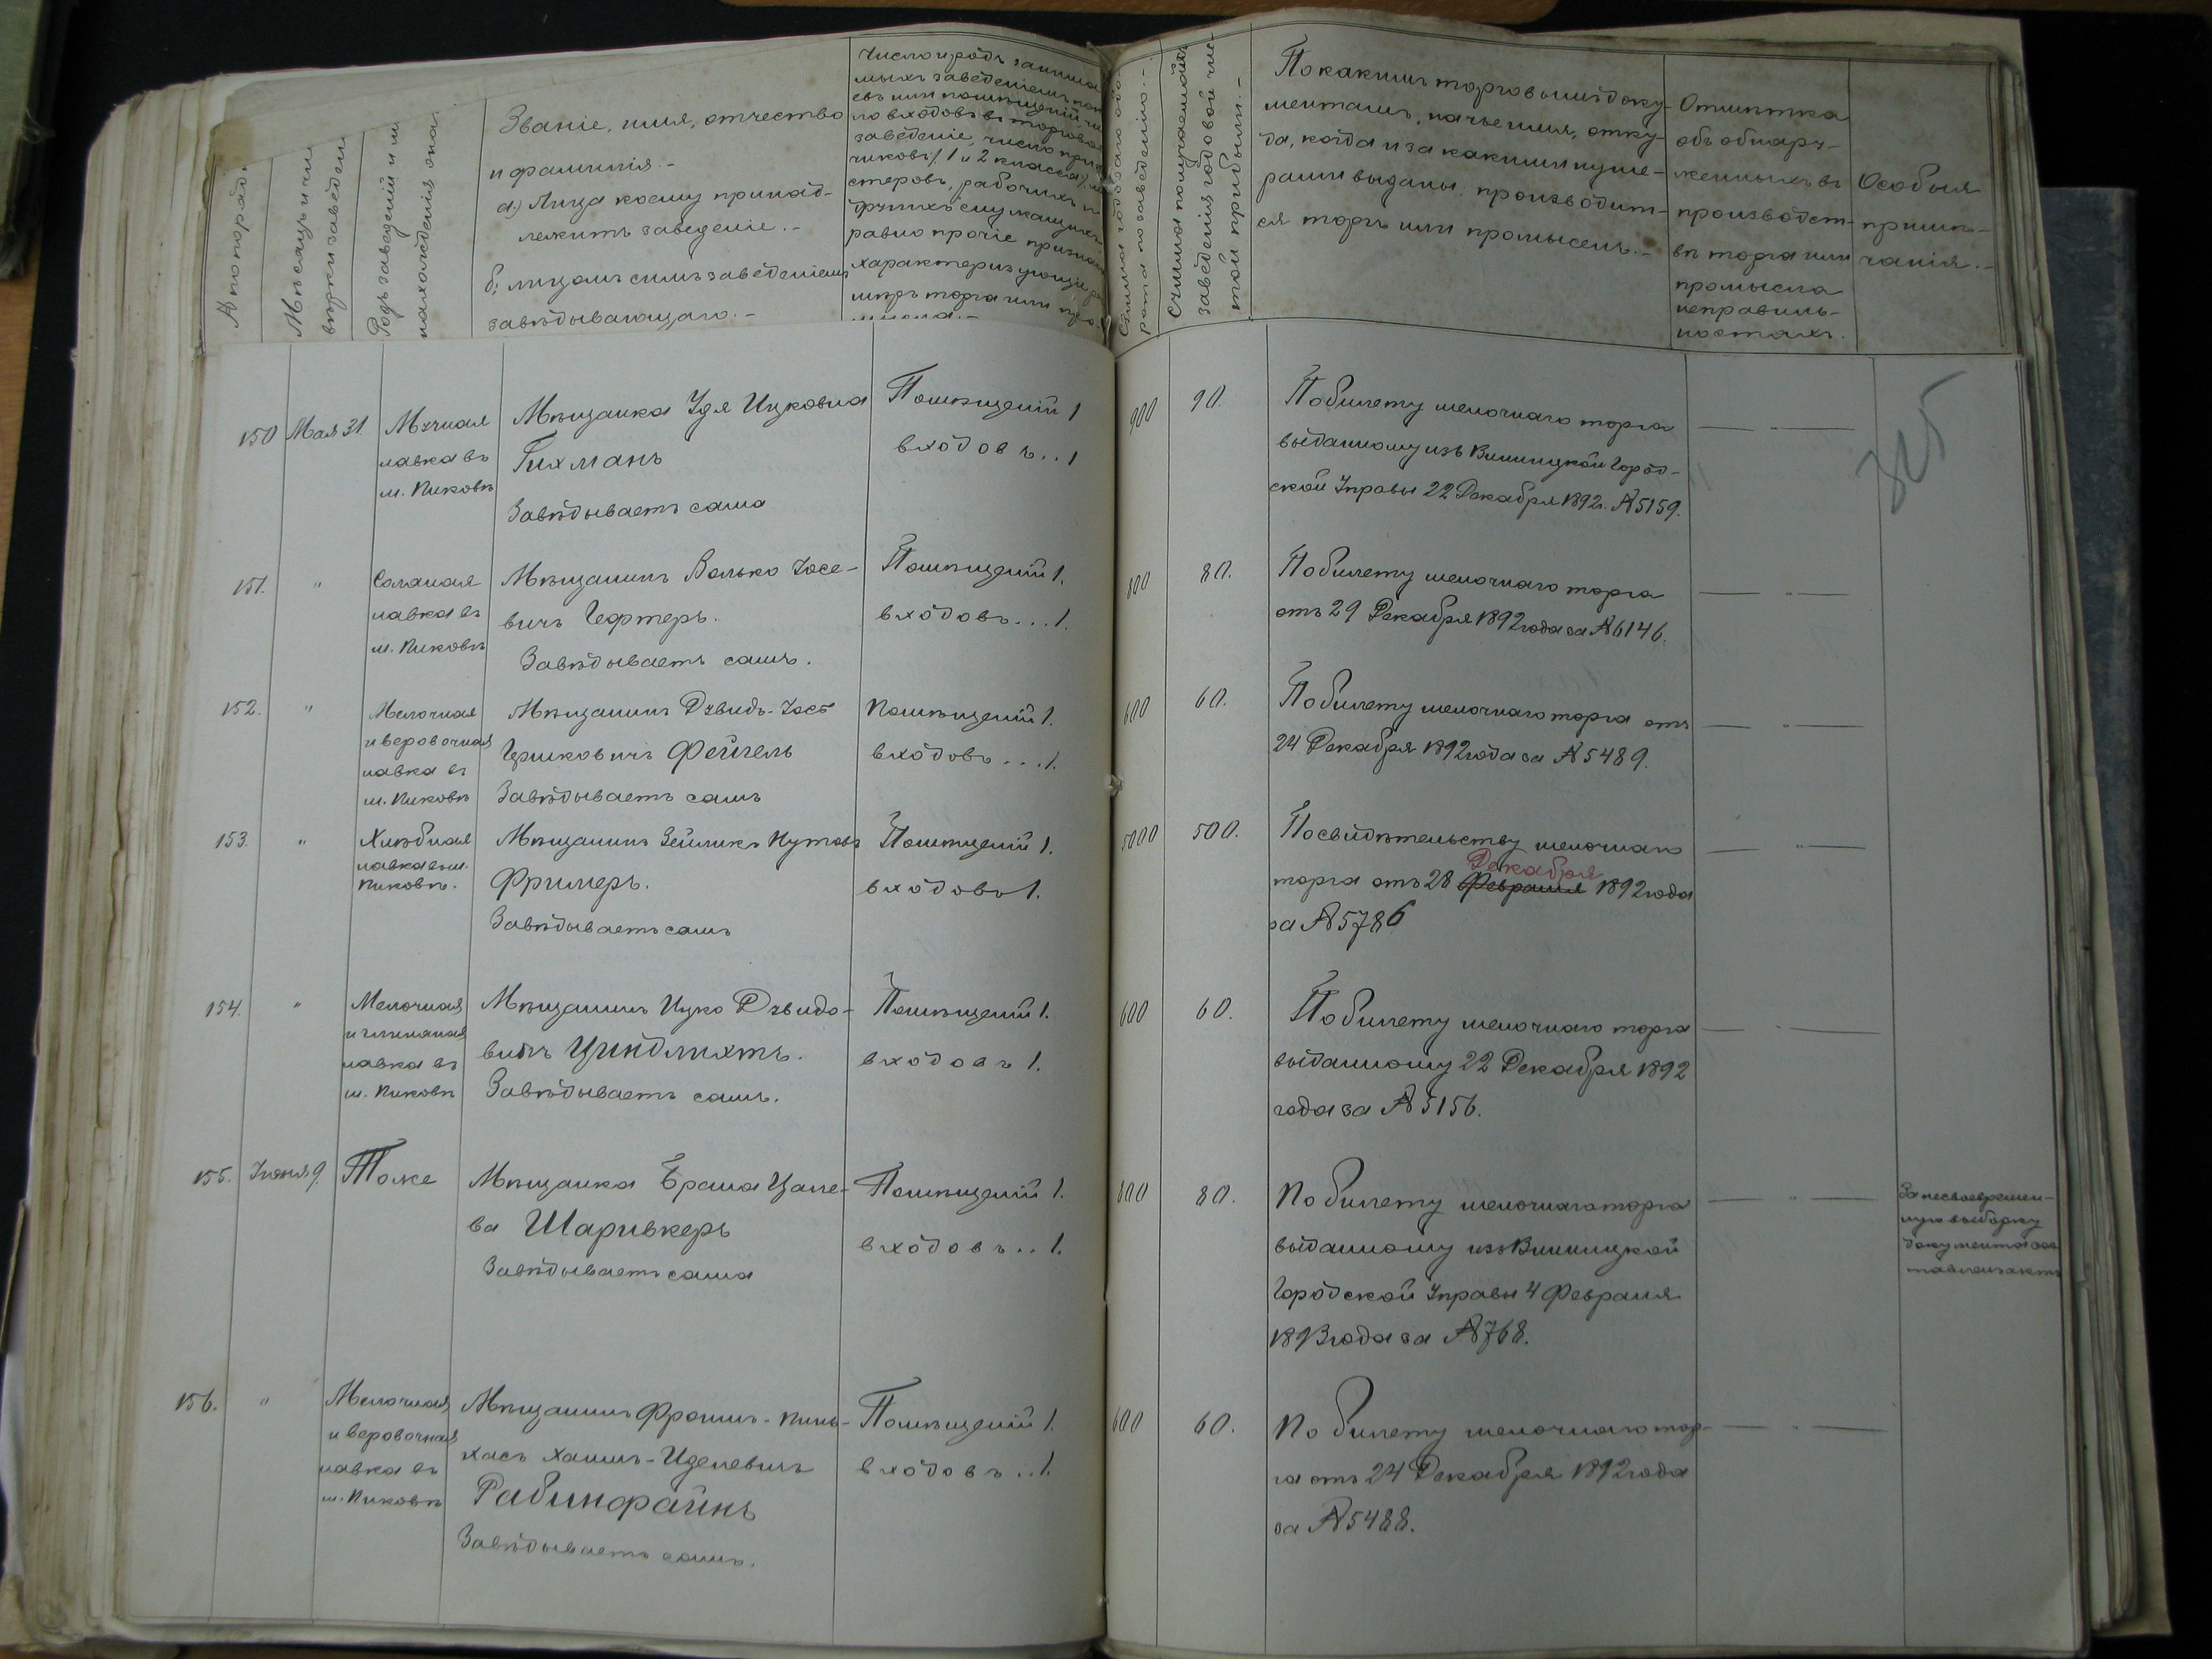 № по порядк
Мѣсяцъ и чи
вѣрки заведен
Родъ заведенiй и м
нахожденiя они
Званіе, имя, отчество
и фамилія.-
а) Лица коему принад-
лежитъ заведеніе.-
б) лицомъ симъ заведеніемъ
завѣдывающаго.-
Число и родъ занима
мыхъ заведеніемъ пок
евъ или помѣщеній чи
ло входовъ въ торгово
заведеніе, число прик
чиковъ (1 и 2 класса), м
стеровъ, рабочихъ и
другихъ служащихъ
равно прочіе признак
характеризующіе ра
мѣръ торга или про
Сумма годоваго обо-
рота по заведенію.-
Сумма получаемой отъ
заведенія годовой чис-
той прибыли.-
По какимъ торговымъ доку-
ментамъ, на чье имя, отку-
да, когда и за какими нуме-
рами выданы, производит-
ся торгъ или промыселъ.-
Отмѣтка
объ обнару-
женныхъ въ
производст-
вѣ торга или
промысла
неправиль-
ностахъ.
Особыя
примѣ-
чанія.-
150 Мая 31. Мучная
лавка въ
м. Пиковѣ
Мѣщанка Удя Ицковна
Гихманъ
Завѣдываетъ сама
Помѣщеній 1
входовъ..1
900 90.
По билету мелочнаго торга
выданному изъ Винницкой Город-
ской Управы 22 Декабря 1892г. №5159.
— " —
325
151. " Соляная
лавка въ
м. Пиковѣ
Мѣщанинъ Волько Іосе-
вичъ Гефтеръ.
Завѣдываетъ самъ.
Помѣщеній 1.
входовъ...1.
800 80.
По билету мелочнаго торга
отъ 29 Декабря 1892 года за №6146.
— " —
152. " Мелочная
и веровочная
лавка въ
м. Пиковѣ
Мѣщанинъ Дувидъ-Іосъ
Гершковичъ Фейгель
Завѣдываетъ самъ
Помѣщеній 1.
входовъ...1.
600 60.
По билету мелочнаго торга отъ
24 Декабря 1892 года за №5489.
— " —
153. " Хлѣбная
лавка въ м.
Пиковѣ.
Мѣщанинъ Зейликъ Нутовъ
Фримеръ.
Завѣдываетъ самъ
Помѣщеній 1.
входовъ 1.
5000 500.
По свидѣтельству мелочнаго
Декабря
торга отъ 28 Февраля 1892 года
за №5786
— " —
154. " Мелочная
и глиняная
лавка въ
м. Пиковѣ
Мѣщанинъ Ицко Дувидо-
вичъ Циндлихтъ.
Завѣдываетъ самъ.
Помѣщеній 1.
входовъ 1.
600 60.
По билету мелочнаго торга
выданному 22 Декабря 1892
года за №5156.
— " —
155. Іюня 9. Тоже
Мѣщанка Брана Цале-
ва Шаривкеръ
Завѣдываетъ сама
Помѣщеній 1.
входовъ..1.
800 80.
По билету мелочнаго торга
выданному изъ Винницкой
Городской Управы 4 Февраля
1893 года за №768.
— " —
За несвоевремен-
ную выборку
документа сос
тавленъ актъ
156. " Мелочная
и веровочная
лавка въ
м. Пиковѣ
Мѣщанинъ Фроимъ-Пинь-
хасъ Хаимъ-Иделевичъ
Рабинфайнъ
Завѣдываетъ самъ.
Помѣщеній 1.
входовъ..1.
600 60.
По билету мелочнаго тор-
га отъ 24 Декабря 1892 года
за №5488.
— " —